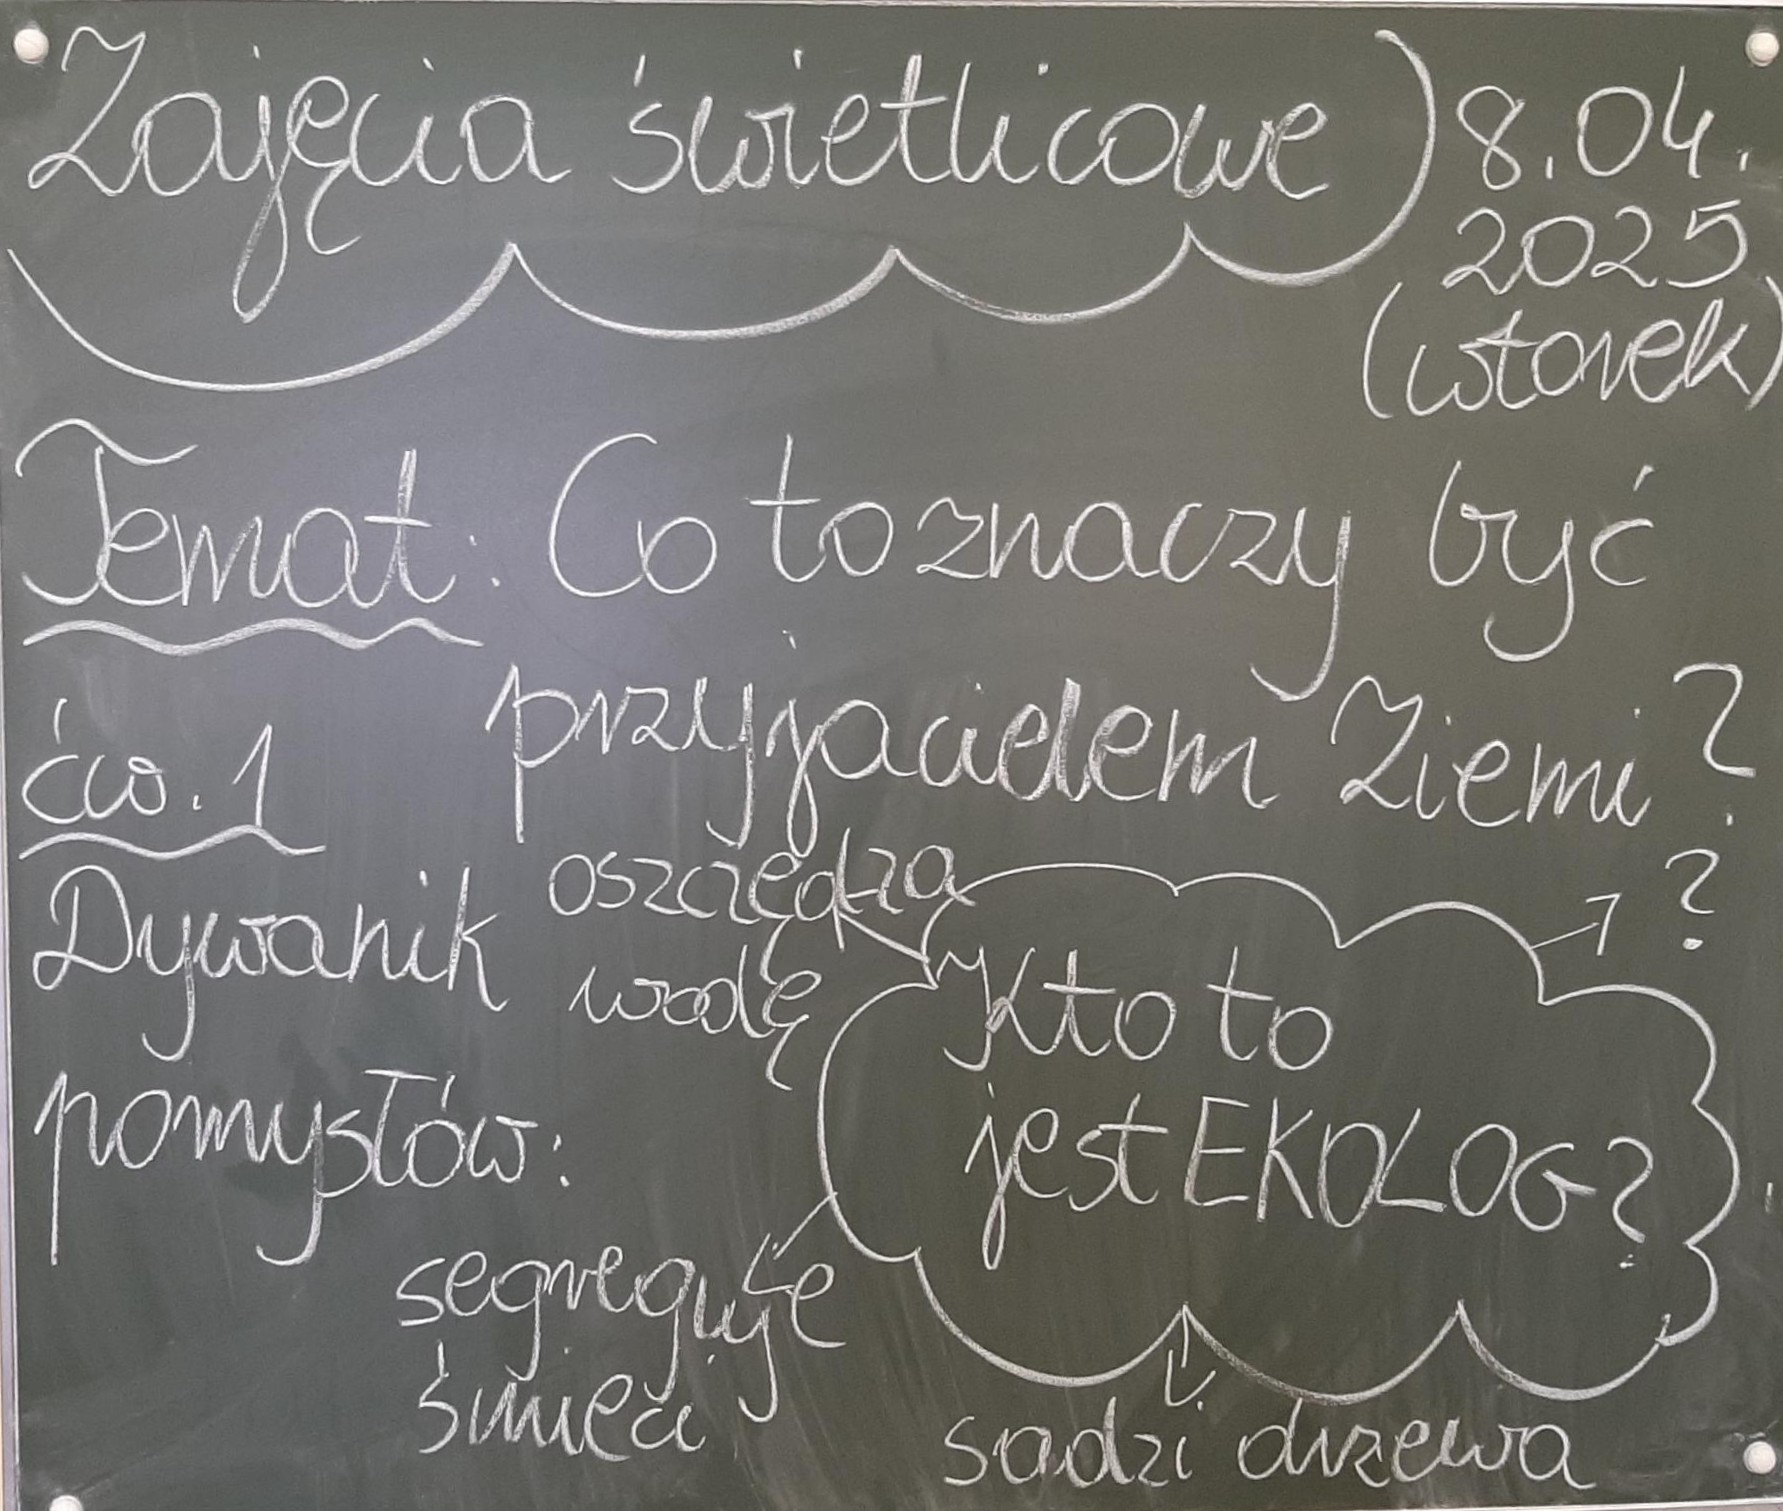 Zajęcia świetlicowe
8.04.
2025
(wtorek)
Temat: Co to znaczy być
przyjacielem Ziemi?
ćw. 1
Dywanik
pomysłów:
oszczędza
wodę
?
Kto to
jest EKOLOG?
segreguje
śmieci
sadzi drzewa